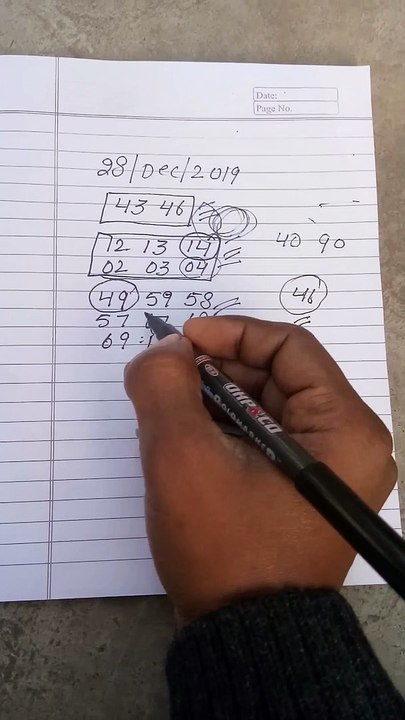 Date:
Page No.
28/Dec/2019
43 46
12 13 14
40 90
02 03 04
49 59 58
46
57
69